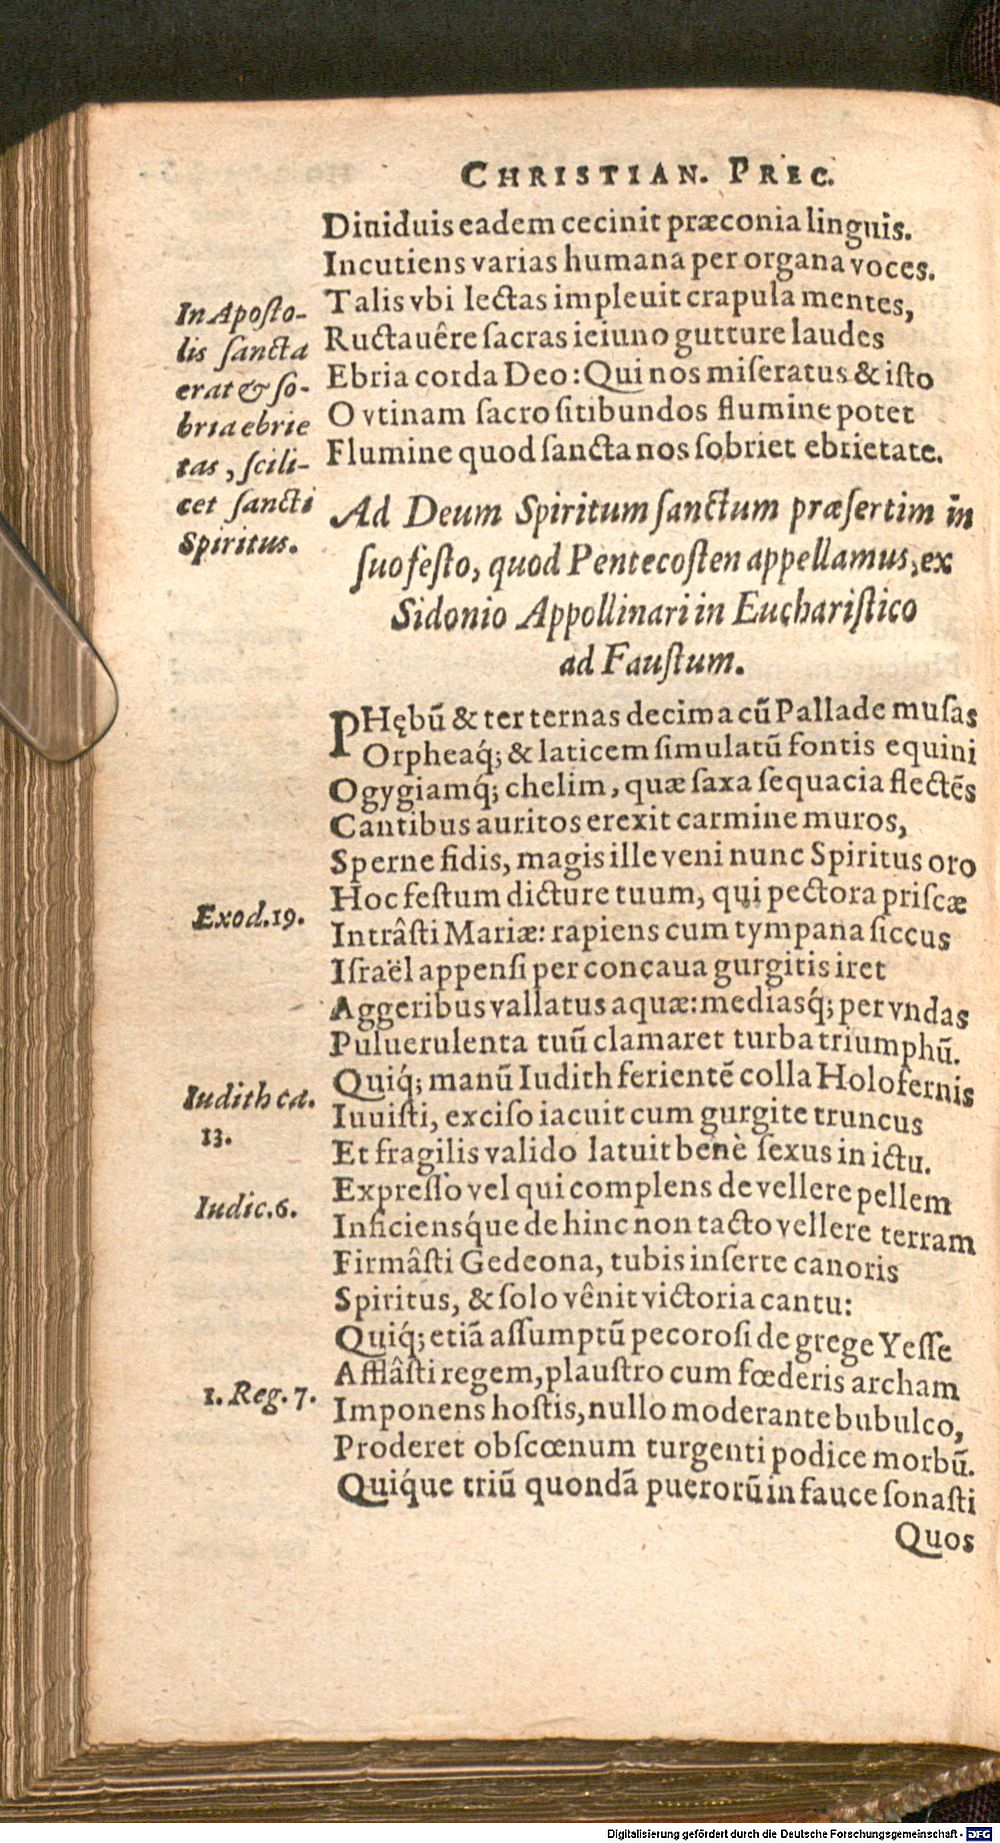 CHRISTIAN. PREC.
Diuiduis eadem cecinit præconia linguis.
Incutiens varias humana per organa voces.
Talis vbi lectas impleuit crapula mentes,
Ructauêre sacras ieiuno gutture laudes
Ebria corda Deo: Qui nos miseratus & isto
O vtinam sacro sitibundos flumine potet
Flumine quod sancta nos sobriet ebrietate.
In Aposto-
lis sancta
erat & so-
bria ebrie
tas, scili-
cet sancti
Spiritus.
Ad Deum Spiritum sanctum præsertim in
suo festo, quod Pentecosten appellamus, ex
Sidonio Appollinari in Eucharistico
ad Faustum.
PHębũ & ter ternas decima cũ Pallade musas
Orpheaq́; & laticem simulatũ fontis equini
Ogygiamq́; chelim, quæ saxa sequacia flectẽs
Cantibus auritos erexit carmine muros,
Sperne fidis, magis ille veni nunc Spiritus oro
Hoc festum dicture tuum, qui pectora priscæ
Exod.19.
Intrâsti Mariæ: rapiens cum tympana siccus
Israël appensi per concaua gurgitis iret
Aggeribus vallatus aquæ: mediasq́; per vndas
Puluerulenta tuũ clamaret turba triumphũ.
Quiq́; manũ Iudith ferientẽ colla Holofernis
Iudith ca.
13.
Iuuisti, exciso iacuit cum gurgite truncus
Et fragilis valido latuit benè sexus in ictu.
Expresso vel qui complens de vellere pellem
Iudic.6.
Inficiensq́ue de hinc non tacto vellere terram
Firmâsti Gedeona, tubis inserte canoris
Spiritus, & solo vênit victoria cantu:
Quiq́; etiã assumptũ pecorosi de grege Yesse
Afflâsti regem, plaustro cum fœderis archam
1. Reg. 7.
Imponens hostis, nullo moderante bubulco,
Proderet obscœnum turgenti podice morbũ.
Quiq́ue triũ quondã puerorũ in fauce sonasti
Quos
Digitalisierung gefördert durch die Deutsche Forschungsgemeinschaft - DFG